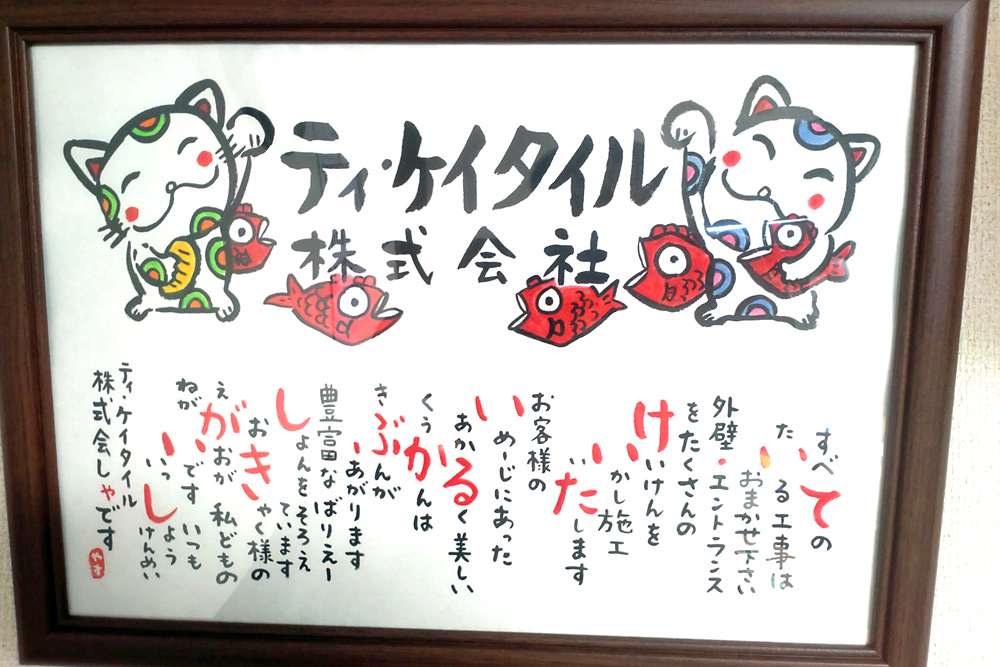 ティ・ケイタイル
株式会社
すべての
たいる工事は
おまかせ下さい
外壁・エントランス
をたくさんの
けいけんを
いかし施工
いたします
お客様の
いめーじにあった
あかるく美しい
くうかんは
きぶんが
あがります
豊富なばりえー
しょんをそろえ
ています
おきゃく様の
えがおが 私どもの
ねがいです いつも
いっしょう
けんめい
ティ・ケイタイル
株式会しゃです
やす